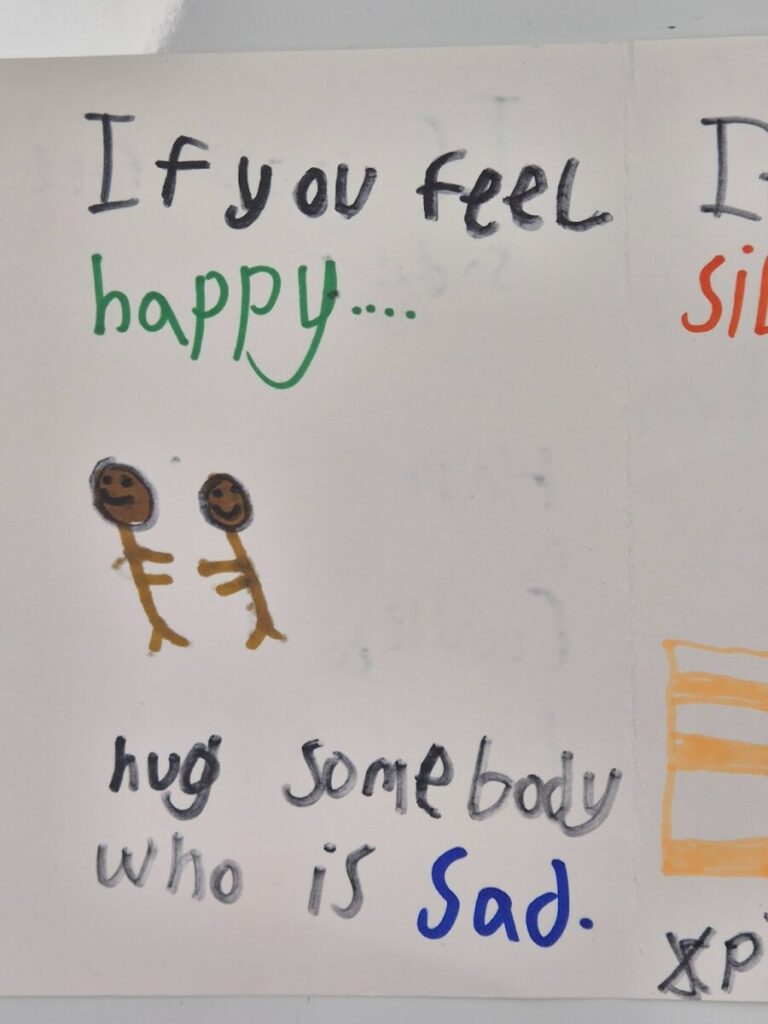 If you feel
happy....
hug somebody
who is sad.